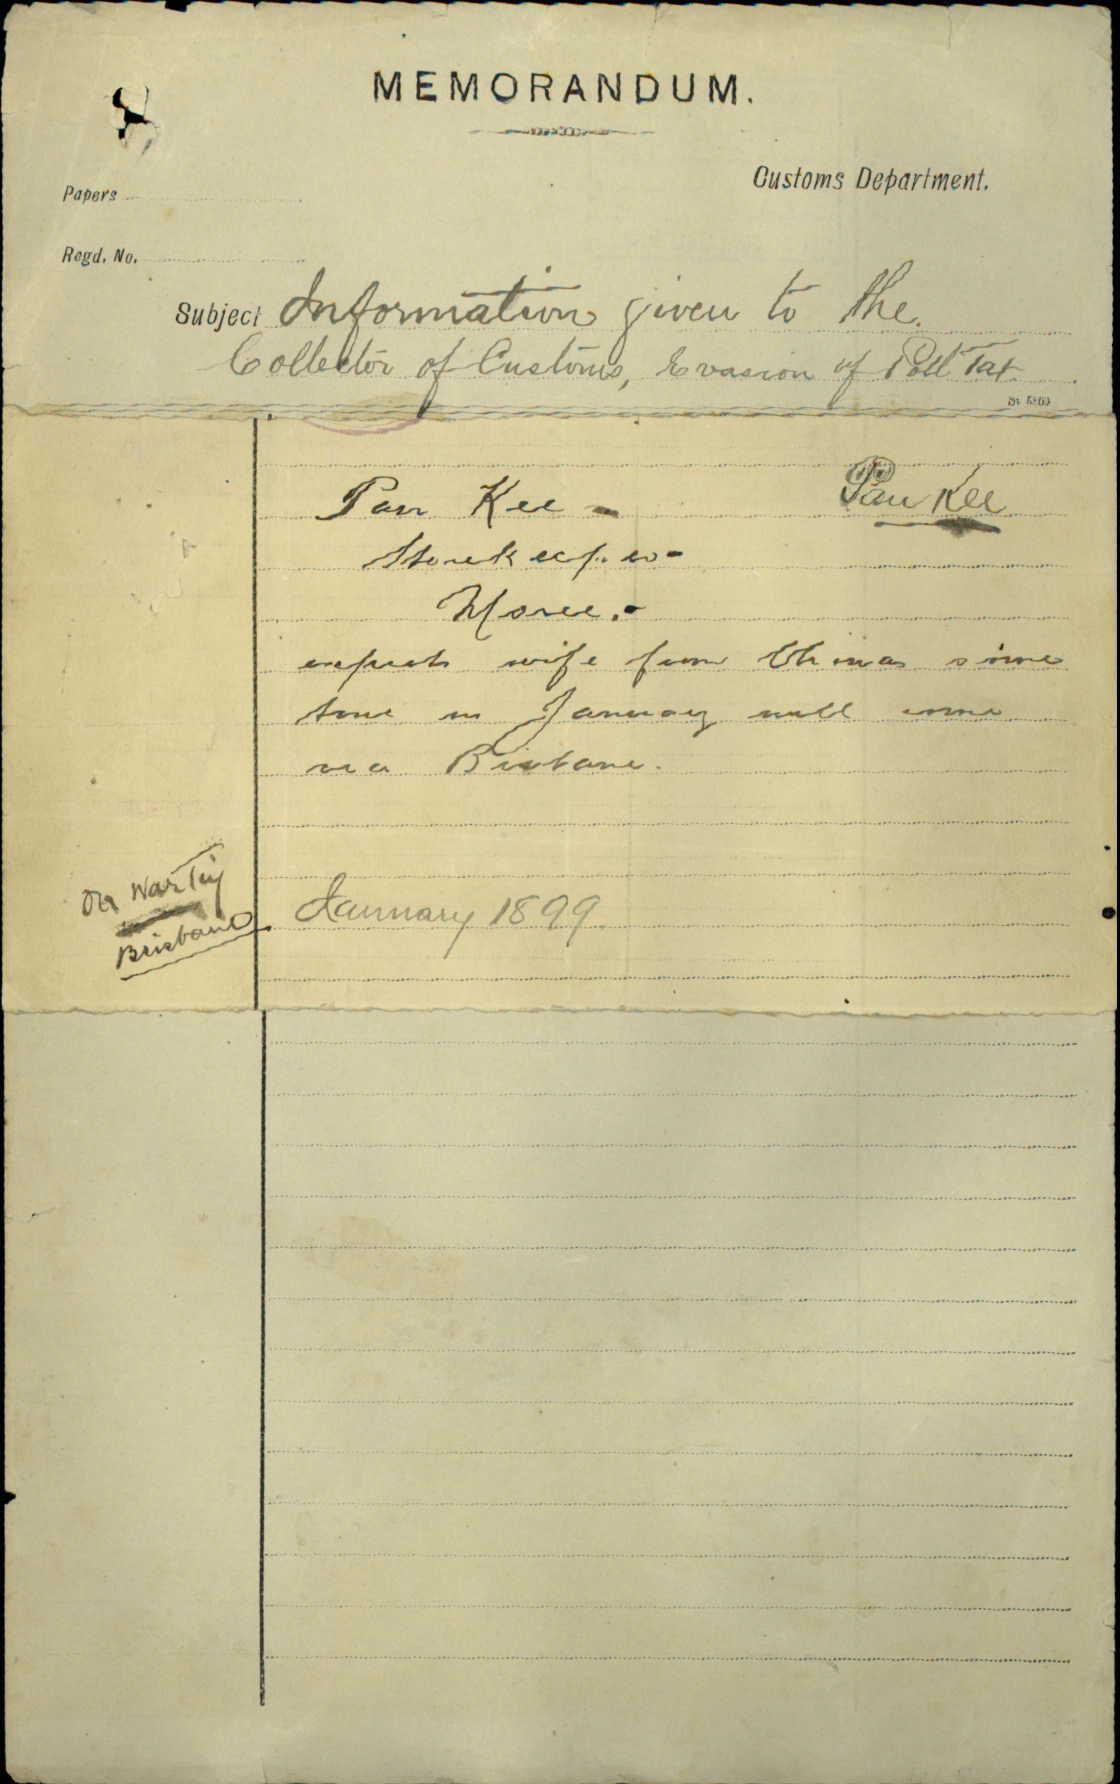 MEMORANDUM.
Customs Department.
Papers
Regd. No.
Subject Information given to the
Collector of Customs, Evasion of Poll Tax.
Pan Kee - Pan Kee
Storekeeper -
Moree. -
expects wife from China some
time in January will come
via Brisbane.
On War Tiy
Brisbane
January 1899.